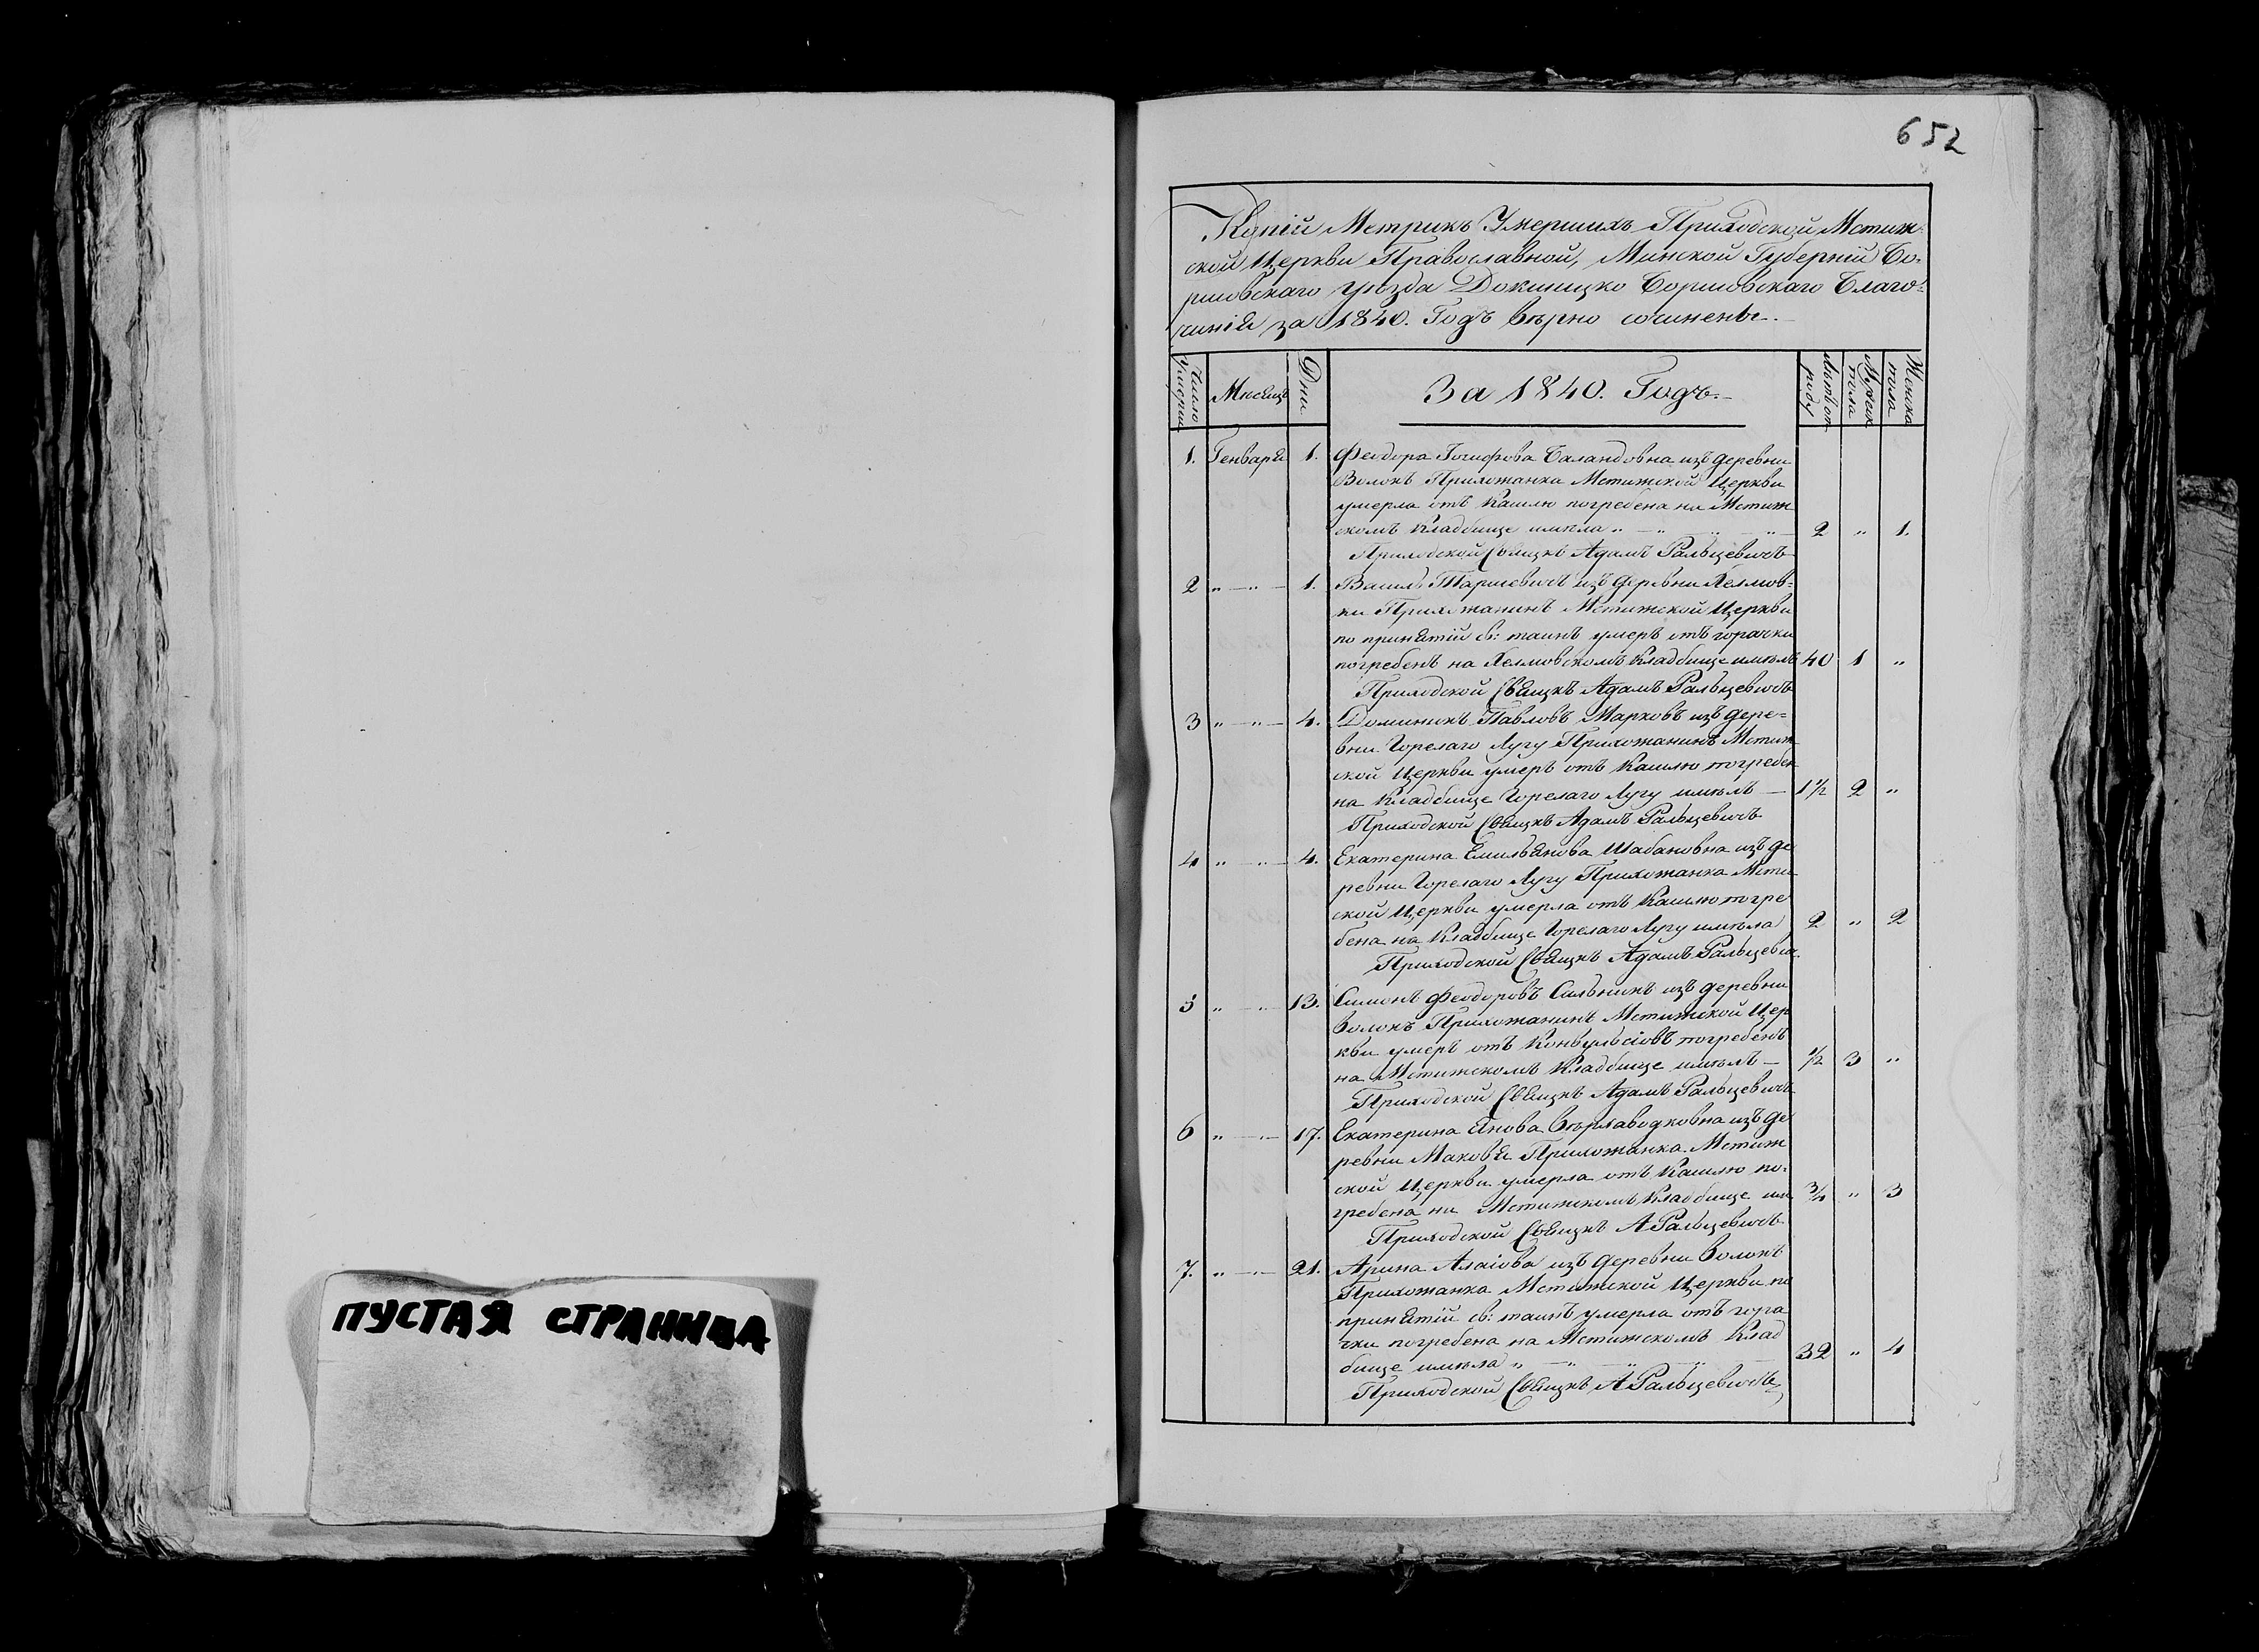 652
Копіи Метрикъ Умершихъ Приходской Мстиж-
ской Церкви Православной, Минской Губерніи Бо-
рисовскаго уѣзда Докшицко Борисовскаго Благо-
чинія за 1840. Годъ вѣрно сочинены.
Число умерш
Мѣсяцъ
Дни
За 1840. Годъ.
Лѣтъ отъ роду
Мужска пола
Женска пола
1. Генваря 1. Феодора Іосифова Баландовна изъ деревни
Волокъ Прихожанка Мстижской Церкви
умерла отъ Кашлю погребена на Мстиж
скомъ Кладбище имѣла „ — „ 2 „ 1.
Приходской Свящкъ Адамъ Ральцевичъ
2 „ — „ — 1. Василь Тарасевичъ изъ деревни Хелмов-
ки Прихожанинъ Мстижской Церкви
по принятіи св: таинъ умеръ отъ горачки
погребенъ на Хелмовскомъ Кладбище имѣлъ 40 1 „
Приходской Свящкъ Адамъ Ральцевичъ
3 „ — „ — 4. Доминикъ Павловъ Марковъ изъ дере-
вни Горелаго Лугу Прихожанинъ Мстиж
ской Церкви умеръ отъ Кашлю погребен
на Кладбище Горелаго Лугу имѣлъ — 1½ 2 „
Приходской Свящкъ Адамъ Ральцевичъ
4 „ — „ — 4. Екатерина Емильянова Шабановна изъ де
ревни Горелаго Лугу Прихожанка Мсти
ской Церкви умерла отъ Кашлю погре
бена на Кладбище Горелаго Лугу имѣла 2 „ 2
Приходской Свящкъ Адамъ Ральцевич
5 „ — „ — 13. Симонъ Феодоровъ Сильникъ изъ деревни
Волокъ Прихожанинъ Мстижской Цер
кви умеръ отъ Конвульсіовъ погребенъ
на Мстижскомъ Кладбище имѣлъ — ½ 3 „
Приходской Свящкъ Адамъ Ральцевичъ
6 „ — „ — 17. Екатерина Янова изъ де
ревни Маковья Прихожанка Мстиж
ской Церкви умерла отъ Кашлю по-
гребена на Мстижскомъ Кладбище им ¾ „ 3
Приходской Свящкъ А Ральцевичъ
7. „ — „ — 21. Арина Алаіова изъ деревни Волокъ
Прихожанка Мстижской Церкви по
принятіи св: таинъ умерла отъ гора
чки погребена на Мстижскомъ Клад
бище имѣла „ — „ — „ 32 „ 4
Приходской Свящкъ А Ральцевичъ
ПУСТАЯ СТРАНИЦА